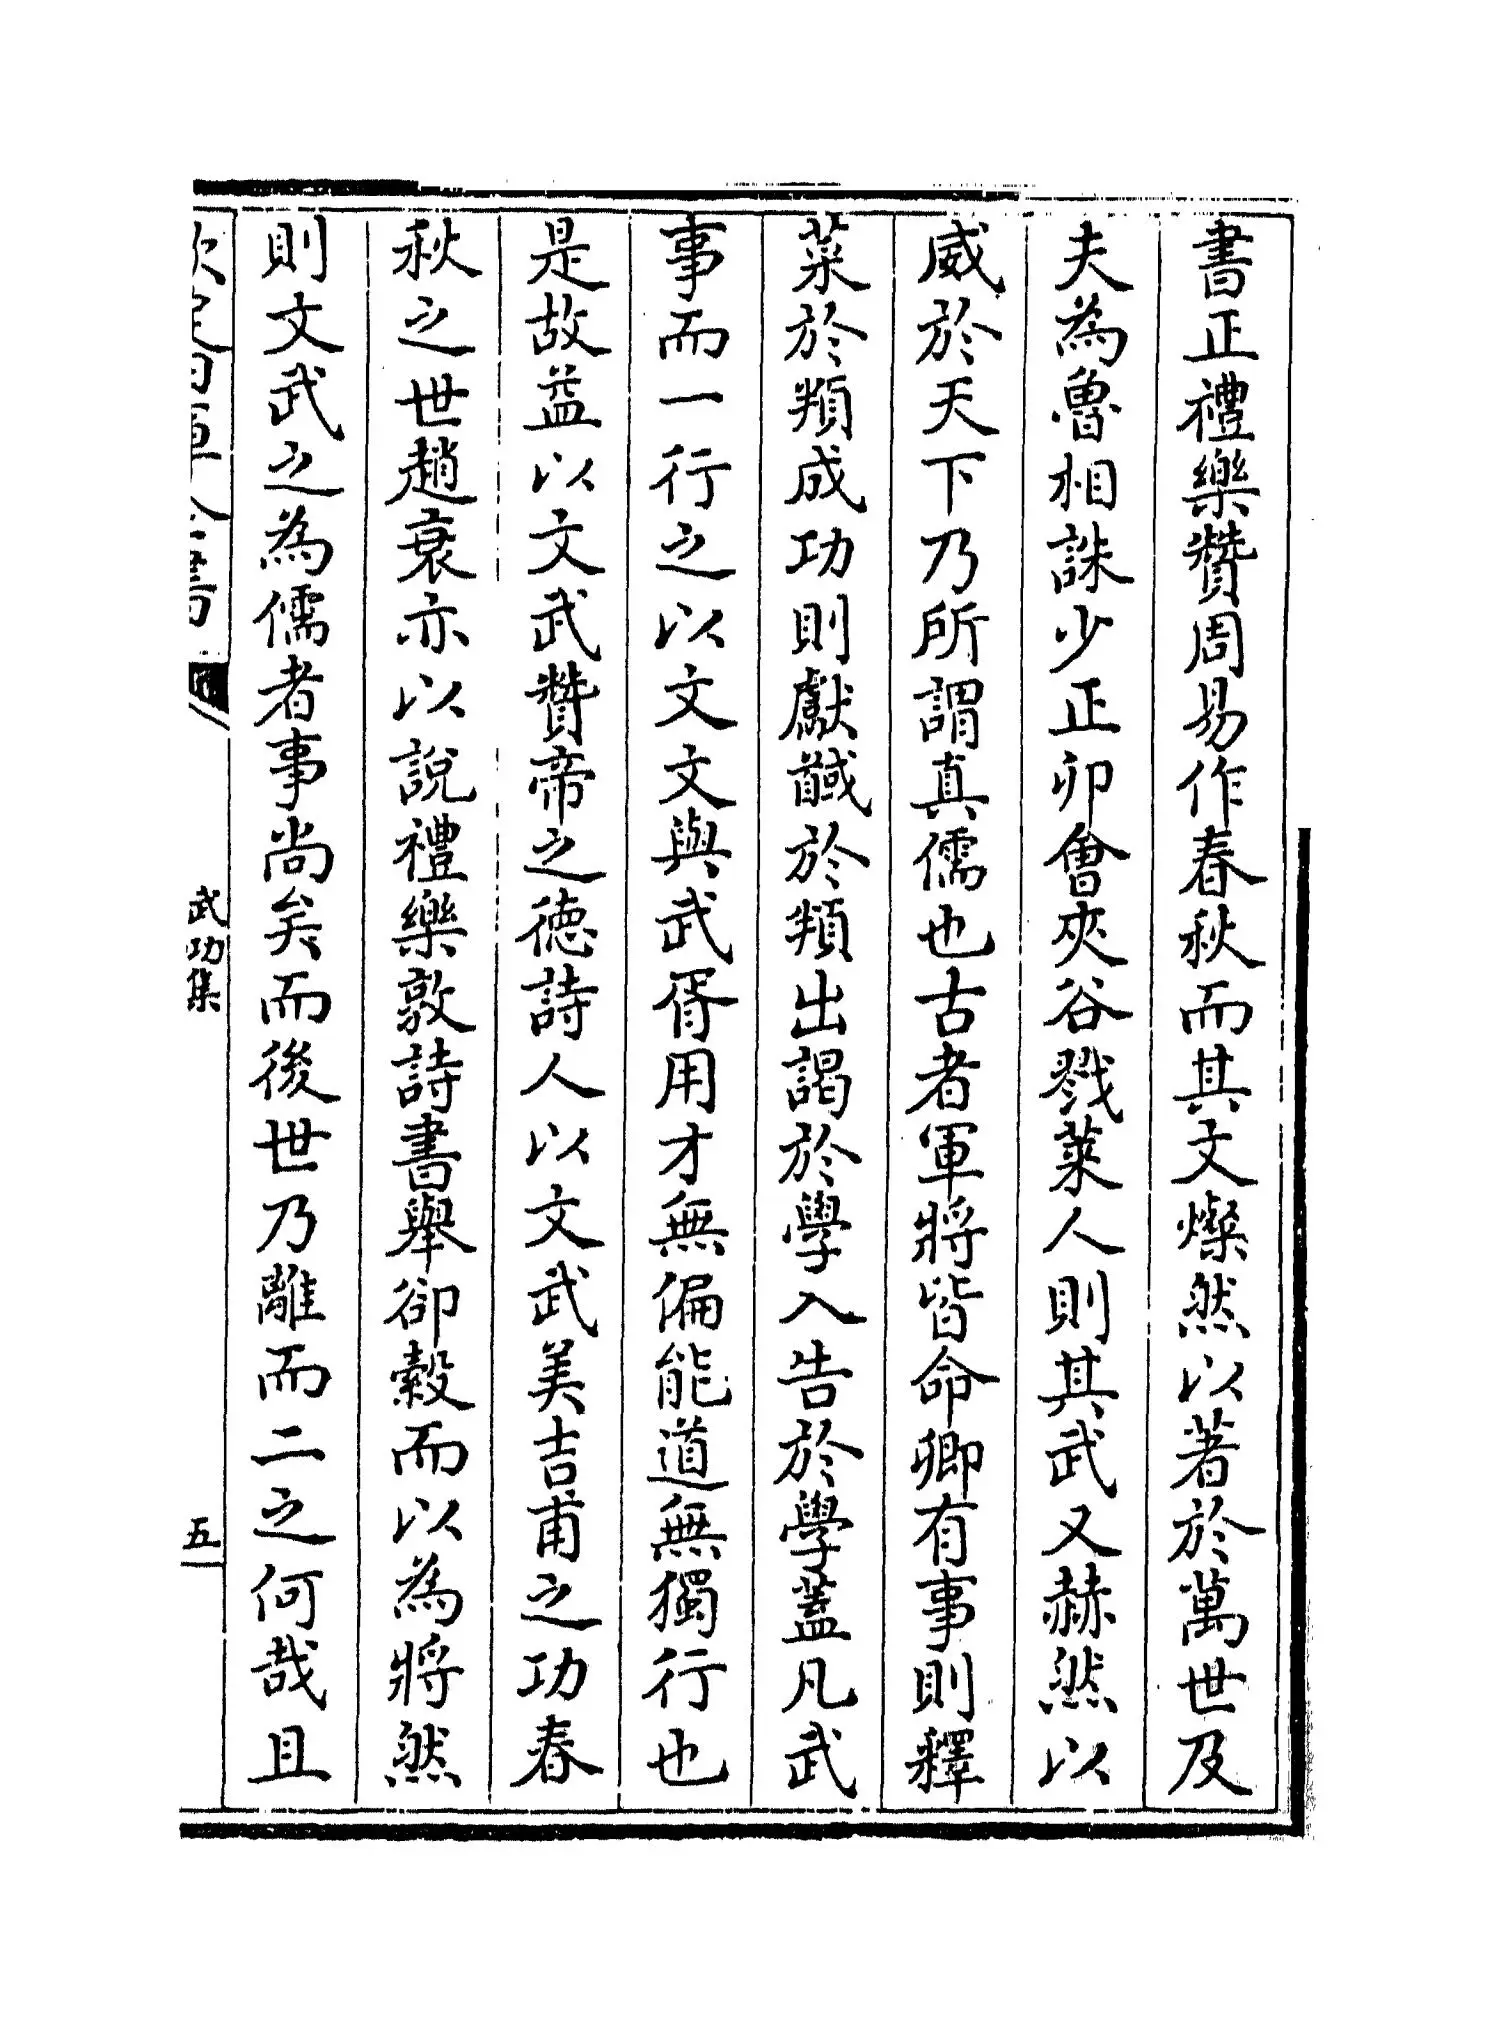 書正禮樂贊周易作春秋而其文燦然以著於萬世及
夫為魯相誅少正卯會夾谷戮萊人則其武又赫然以
威於天下乃所謂真儒也古者軍將皆命卿有事則釋
菜於頖成功則獻馘於頖出謁於學入告於學蓋凡武
事而一行之以文文與武胥用才無偏能道無獨行也
是故益以文武贊帝之德詩人以文武美吉甫之功春
秋之世趙衰亦以說禮樂敦詩書舉郤縠而以為將然
則文武之為儒者事尚矣而後世乃離而二之何哉且
欽定四庫全書
武功集
五